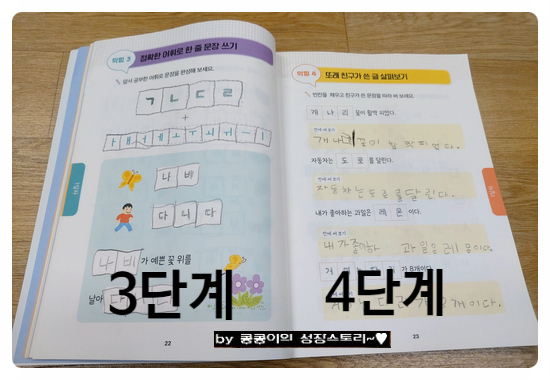 어휘 3 정확한 어휘로 한 줄 문장 쓰기
앞서 공부한 어휘로 문장을 완성해 보세요.
ㄱ ㄴ ㄷ ㄹ
+
나 비
다 니 다
나 비 가 예쁜 꽃 위를
날아 다
3단계
22
어휘 4 또래 친구가 쓴 글 살펴보기
빈칸을 채우고 친구가 쓴 문장을 따라 써 보세요.
개 나 리 꽃이 활짝 피었다.
개나리꽃이 활짝 피었다.
자동차는 도 로 를 달린다.
자동차는 도로를 달린다.
내가 좋아하는 과일은 레 몬 이다.
내가 좋아하 과일은 레몬이다.
가 8개이다.
4단계
23
by 콩콩이의 성장스토리~♥